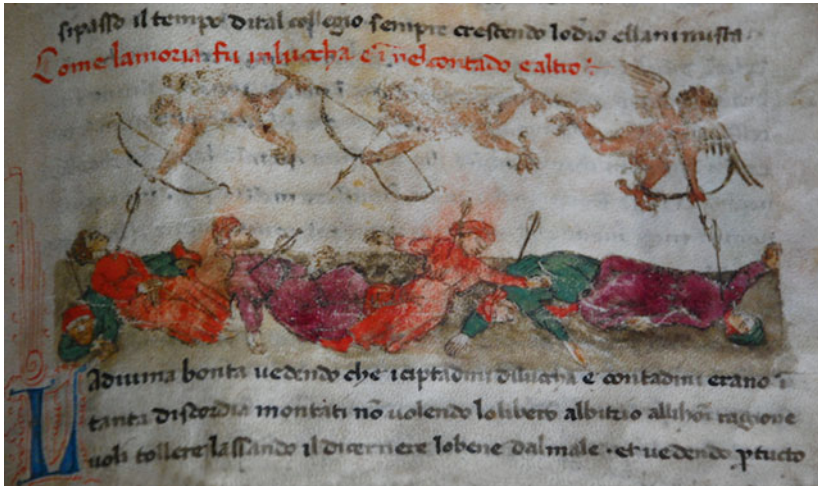 si passo il tempo dital collegio sempre crescendo lodio ellanimista
Come lamoria fu inluccha e ĩ nel contado e altio
Ladiuina bonta uedendo che iciptadini diluccha e contadini erano ĩ
tanta discordia montati nõ uolendo lolibero albitrio allihoĩ ragione
uoli tollere lassando il dicernere lobene dalmale · et uedendo ꝑtucto